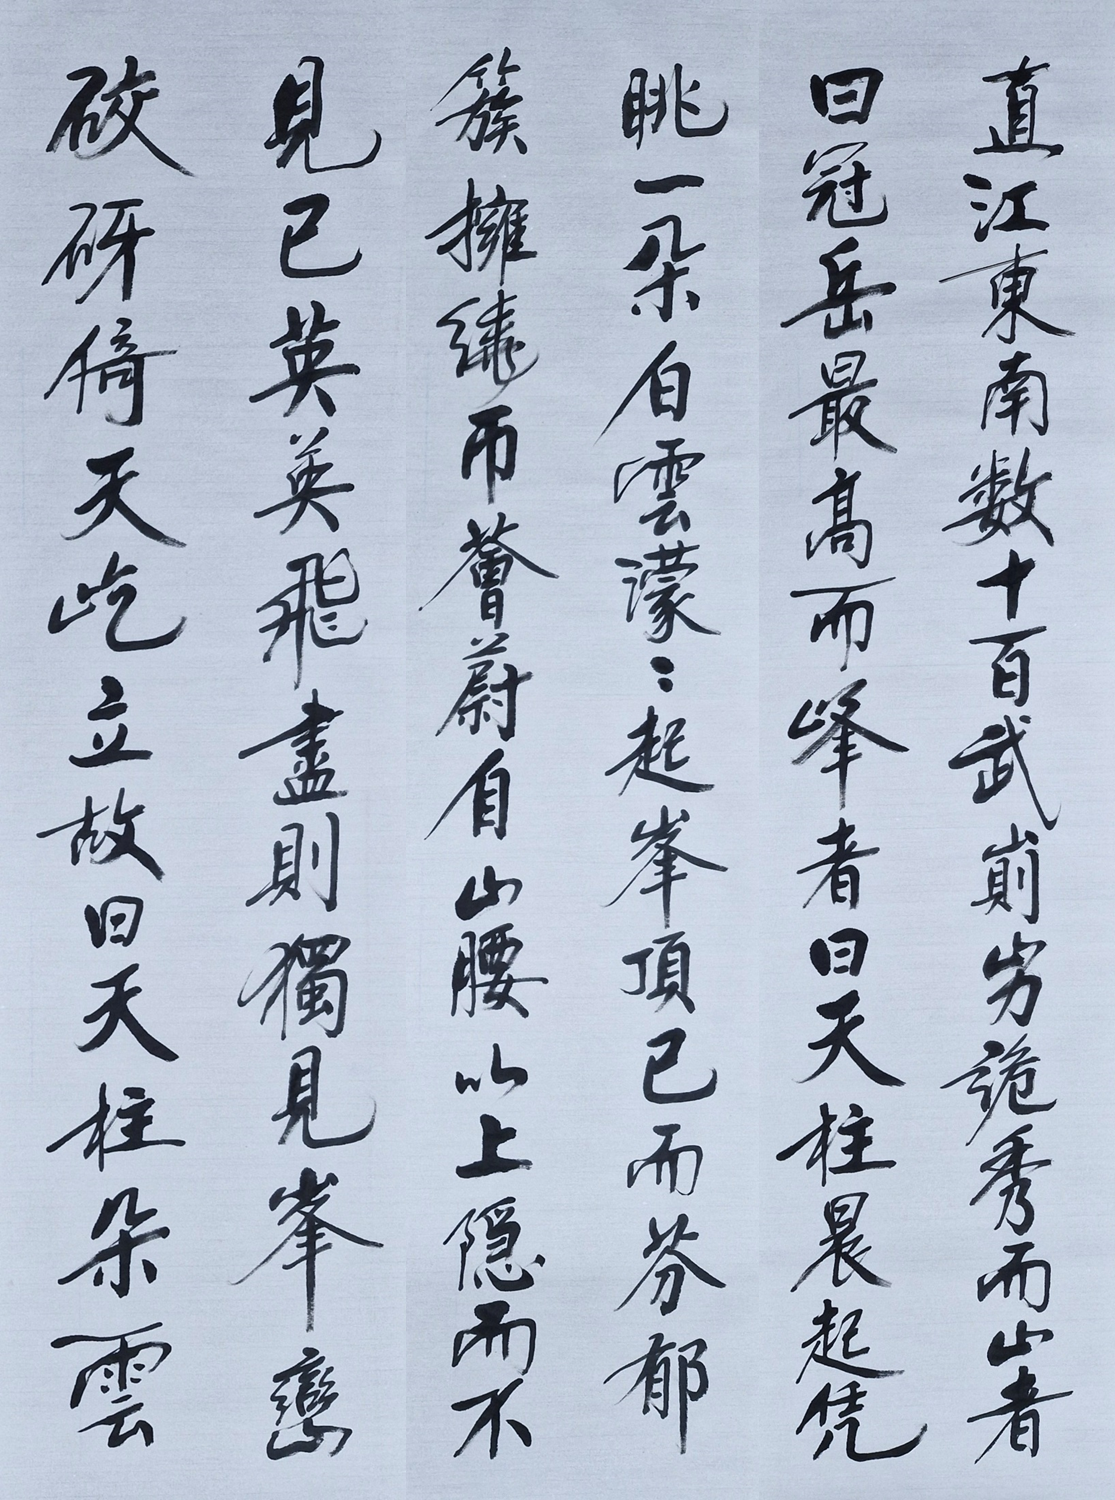 直江東南数十百武崱屴詭秀而山者
曰冠岳最高而峰者曰天柱晨起凭
眺一朵白雲濛〻起峯頂已而芬郁
簇擁繞帀薈蔚自山腰以上隱而不
見已英英飛盡則獨見峯巒
硣砑倚天屹立故曰天柱朵雲